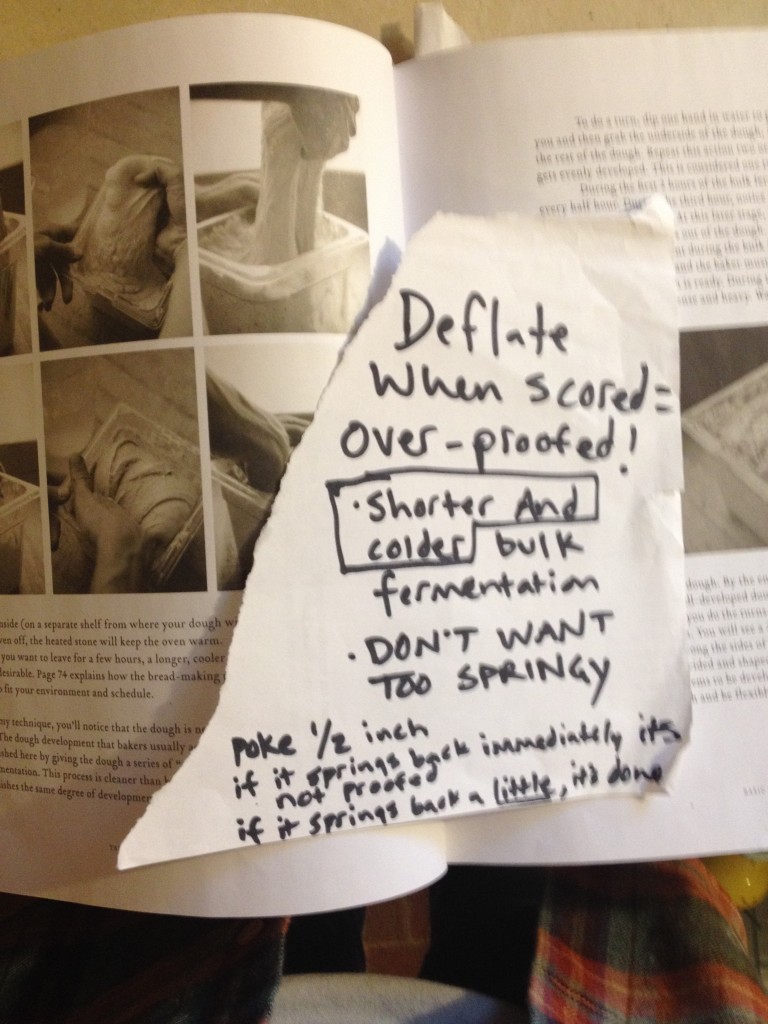 To do a turn, dip one hand in water to
you and then grab the underside of the dough,
the rest of the dough. Repeat this action two
gets evenly developed. This is considered one
During the first hours of the bulk
every half hour.
third hour,
this
of the dough
during the bulk
and the bakes
is ready. During
and heavy.
Deflate
When scored =
Over-proofed!
· Shorter And
colder bulk
fermentation
· DON'T WANT
TOO SPRINGY
poke 1/2 inch
if it springs back immediately its
not proofed
if it springs back a little, it's done
(on a separate shelf from where your dough
off, the heated stone will keep the oven warm.
you want to leave for a few hours, a longer, cooler
Page 74 explains how the bread-making
fit your environment and schedule.
technique, you'll notice that the dough is
The dough development that bakers usually
here by giving the dough a series of "
This process is cleaner than
the same degree of
dough. By the
you do the turns
You will see a
the sides of
and
to be
and be